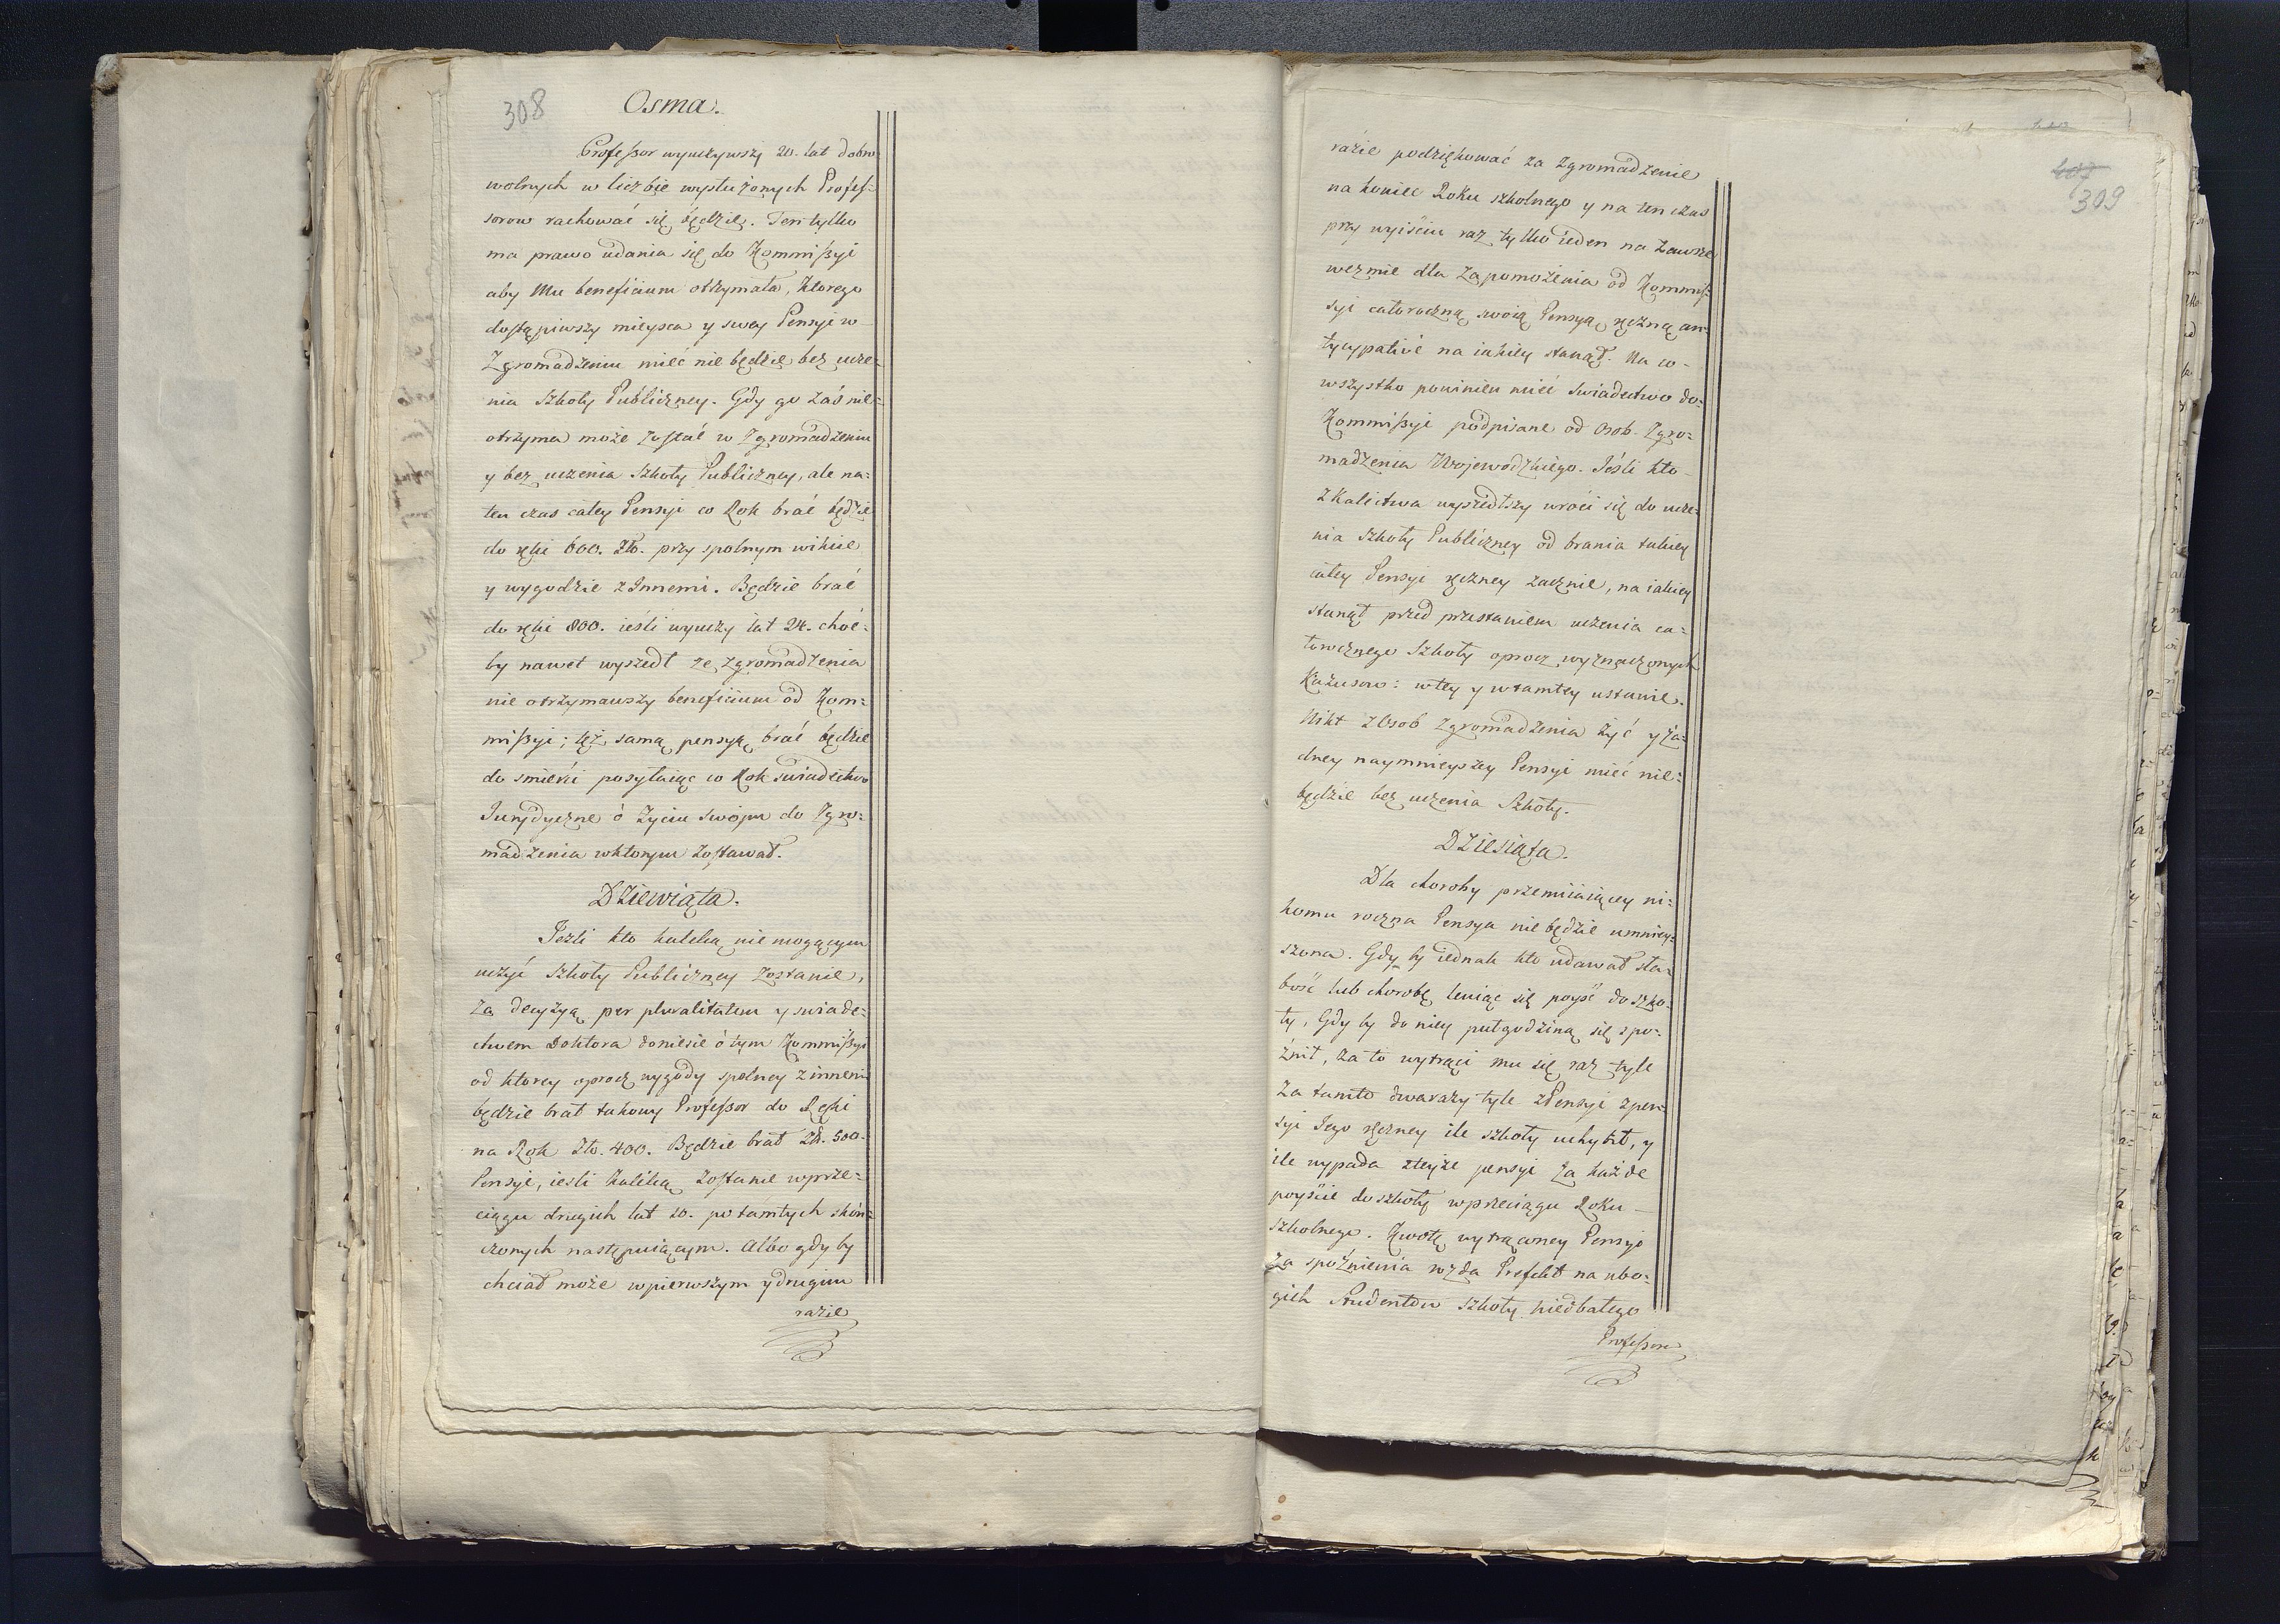 308
Osma.
Professor wyuczywszy 20. lat dobro
wolnych w liczbie wysłużonych Profes-
sorow rachować się będzie. Ten tylko
ma prawo udania się do Kommissyi
aby Mu beneficium otrzymała, ktorego
dostąpiwszy mieysca y swey Pensyi w
Zgromadzeniu mieć nie będzie bez ucze-
nia Szkoły Publiczney. Gdy go zaś nie-
otrzyma może zostać w Zgromadzeniu
y bez uczenia Szkoły Publiczney, ale na-
ten czas całey Pensyi co Rok brać będzie
do ręki 600. Zło. przy spolnym wikcie
y wygodzie z Innemi. Będzie brać
do ręki 800. ieśli wyuczy lat 24. choć-
by nawet wyszedł ze Zgromadzenia
nie otrzymawszy beneficium od Kom-
missyi; tęż samą pensyą brać będzie
do smierci posyłaiąc co Rok swiadectwo
Jurydyczne o Zyciu swojm do Zgro-
madzenia wktorym zostawał.
Dziewiąta.
Jezli kto kaleką nie mogącym
uczyć Szkoły Publiczney zostanie,
za decyzyą per pluralitatem y swiade-
ctwem Doktora doniesie o tym Kommissyi
od ktorey oprocz wygody spolney z innemi
będzie brał takowy Professor do Ręki
na Rok Zło. 400. Będzie brał Zł. 500.
Pensyi, iesli kaleką zostanie wprze-
ciągu drugich lat 10. po tamtych skoń-
czonych następuiącym. Albo gdy by
chciał może wpierwszym y drugim
razie
309
razie podziękować za Zgromadzenie
na koniec Roku szkolnego y na ten czas
przy wyiściu raz tylko ieden na zawsze
wezmie dla zapomożenia od Kommis-
syi całoroczną swoią Pensyą ręczną an-
tycypative na iakiey stanął. Na co-
wszystko powinien mieć swiadectwo do-
Kommissyi podpisane od Osob Zgro-
madzenia Wojewodzkiego. Jeśli kto
z Kalictwa wyszedłszy wroci się do ucze-
nia Szkoły Publiczney od brania takiey
całey Pensyi ręczney zacznie, na iakiey
stanął przed przestaniem uczenia ca-
łorocznego Szkoły oprocz wyznaczonych
Kazusow: wtey y wtamtey ustawie.
Nikt z Osob Zgromadzenia żyć y ża-
dney naymnieyszey Pensyi mieć nie-
będzie bez uczenia Szkoły.
Dziesiąta.
Dla choroby przemiiaiącey ni-
komu roczna Pensya nie będzie umniey-
szona. Gdy by iednak kto udawał sła-
bość lub chorobę leniąc się poyść do szko-
ły, Gdy by do niey pułgodziną się spo-
źnił, za to wytrąci mu się raz tyle
za tamto dwarazy tyle zPensyi zpen-
syi Jego ręczney ile szkoły uchybił, y
ile wypada zteyże pensyi za każde
poyście do szkoły wprzeciągu Roku
szkolnego. Kwotę wytrąconey Pensyi
za spoźnienia wzda Prefekt na ubo-
gich Studentów szkoły niedbałego
Professora